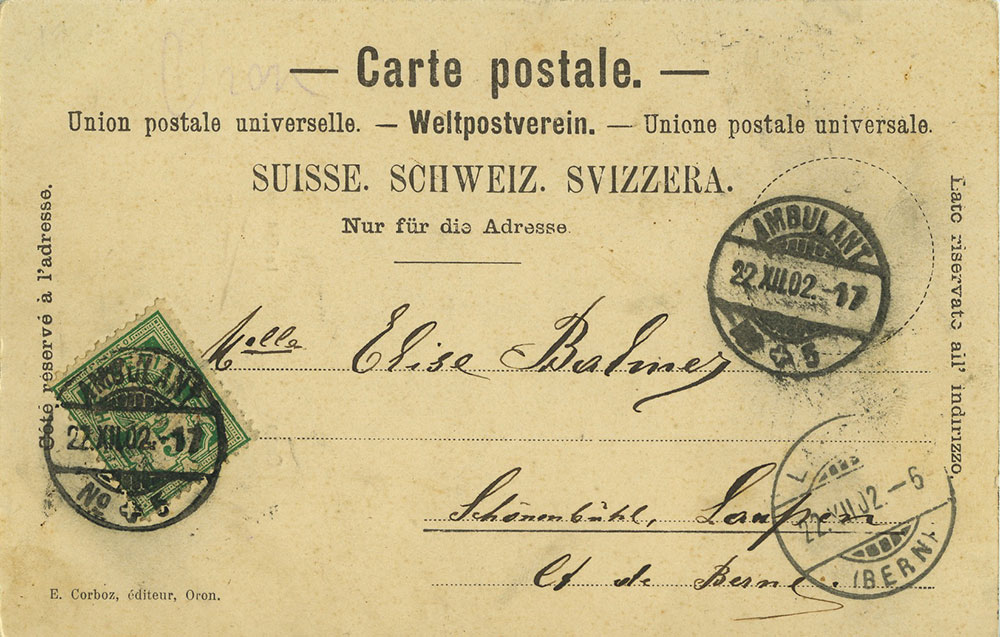 — Carte postale. —
Union postale universelle. — Weltpostverein. — Unione postale universale.
SUISSE. SCHWEIZ. SVIZZERA.
Nur für die Adresse.
Côté réservé à l'adresse.
Lato riservato all' indirizzo.
AMBULANT
22.XII.02.-17
5
Melle Elise Balmer
AMBULANT
22.XII.02.-17
No 5
Schönenbühl, Laupen
Ct de Berne.
22.XII.02-6
(BERN)
E. Corboz, éditeur, Oron.
Oron